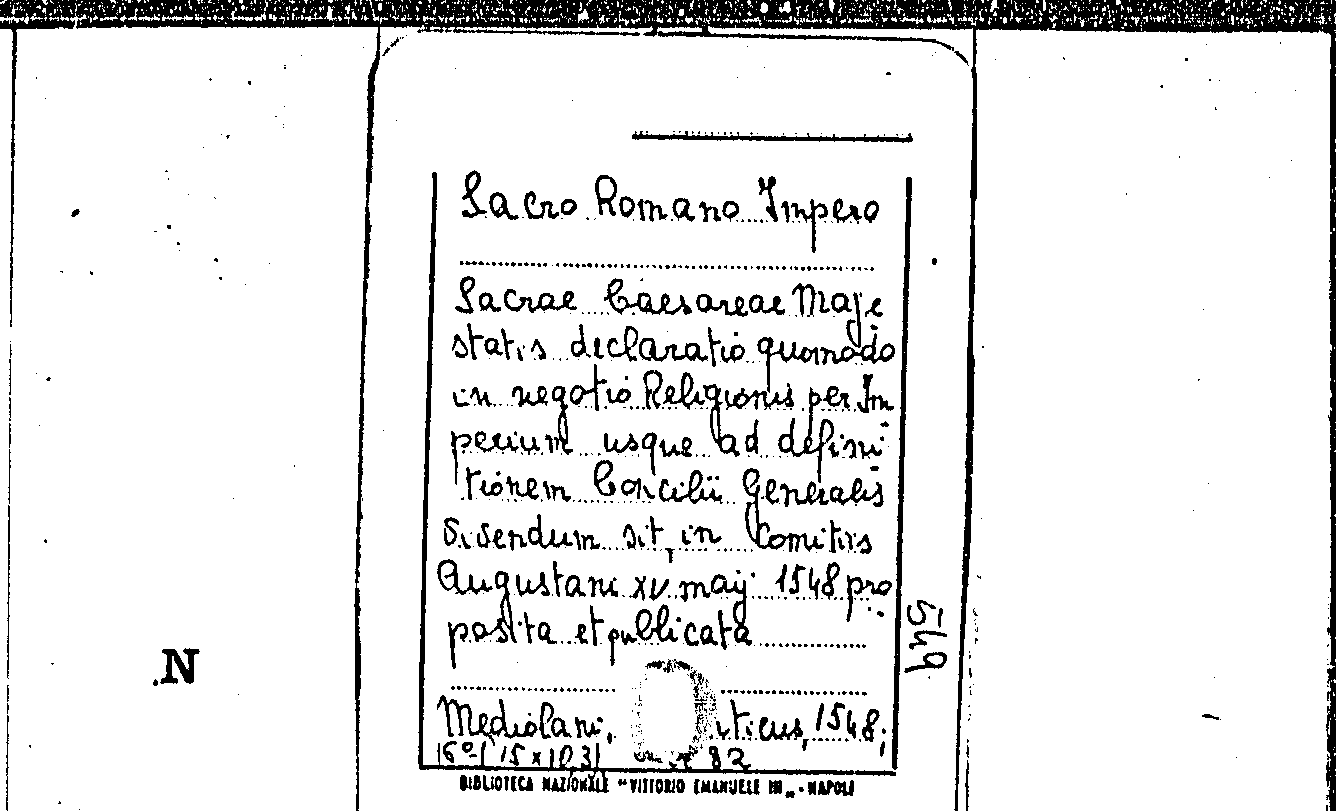 Sacro Romano Impero
Sacrae Caesareae Maje
statis declaratio quomodo
in negotio Religionis per Im
perium usque ad defini
tionem Concilii Generalis
vivendum sit, in Comitiis
Augustani xv maij 1548 pro
posita et publicata
Mediolani, 1548;
16º (15 x 10,3) 82
BIBLIOTECA NAZIONALE "VITTORIO EMANUELE III" - NAPOLI
549
N